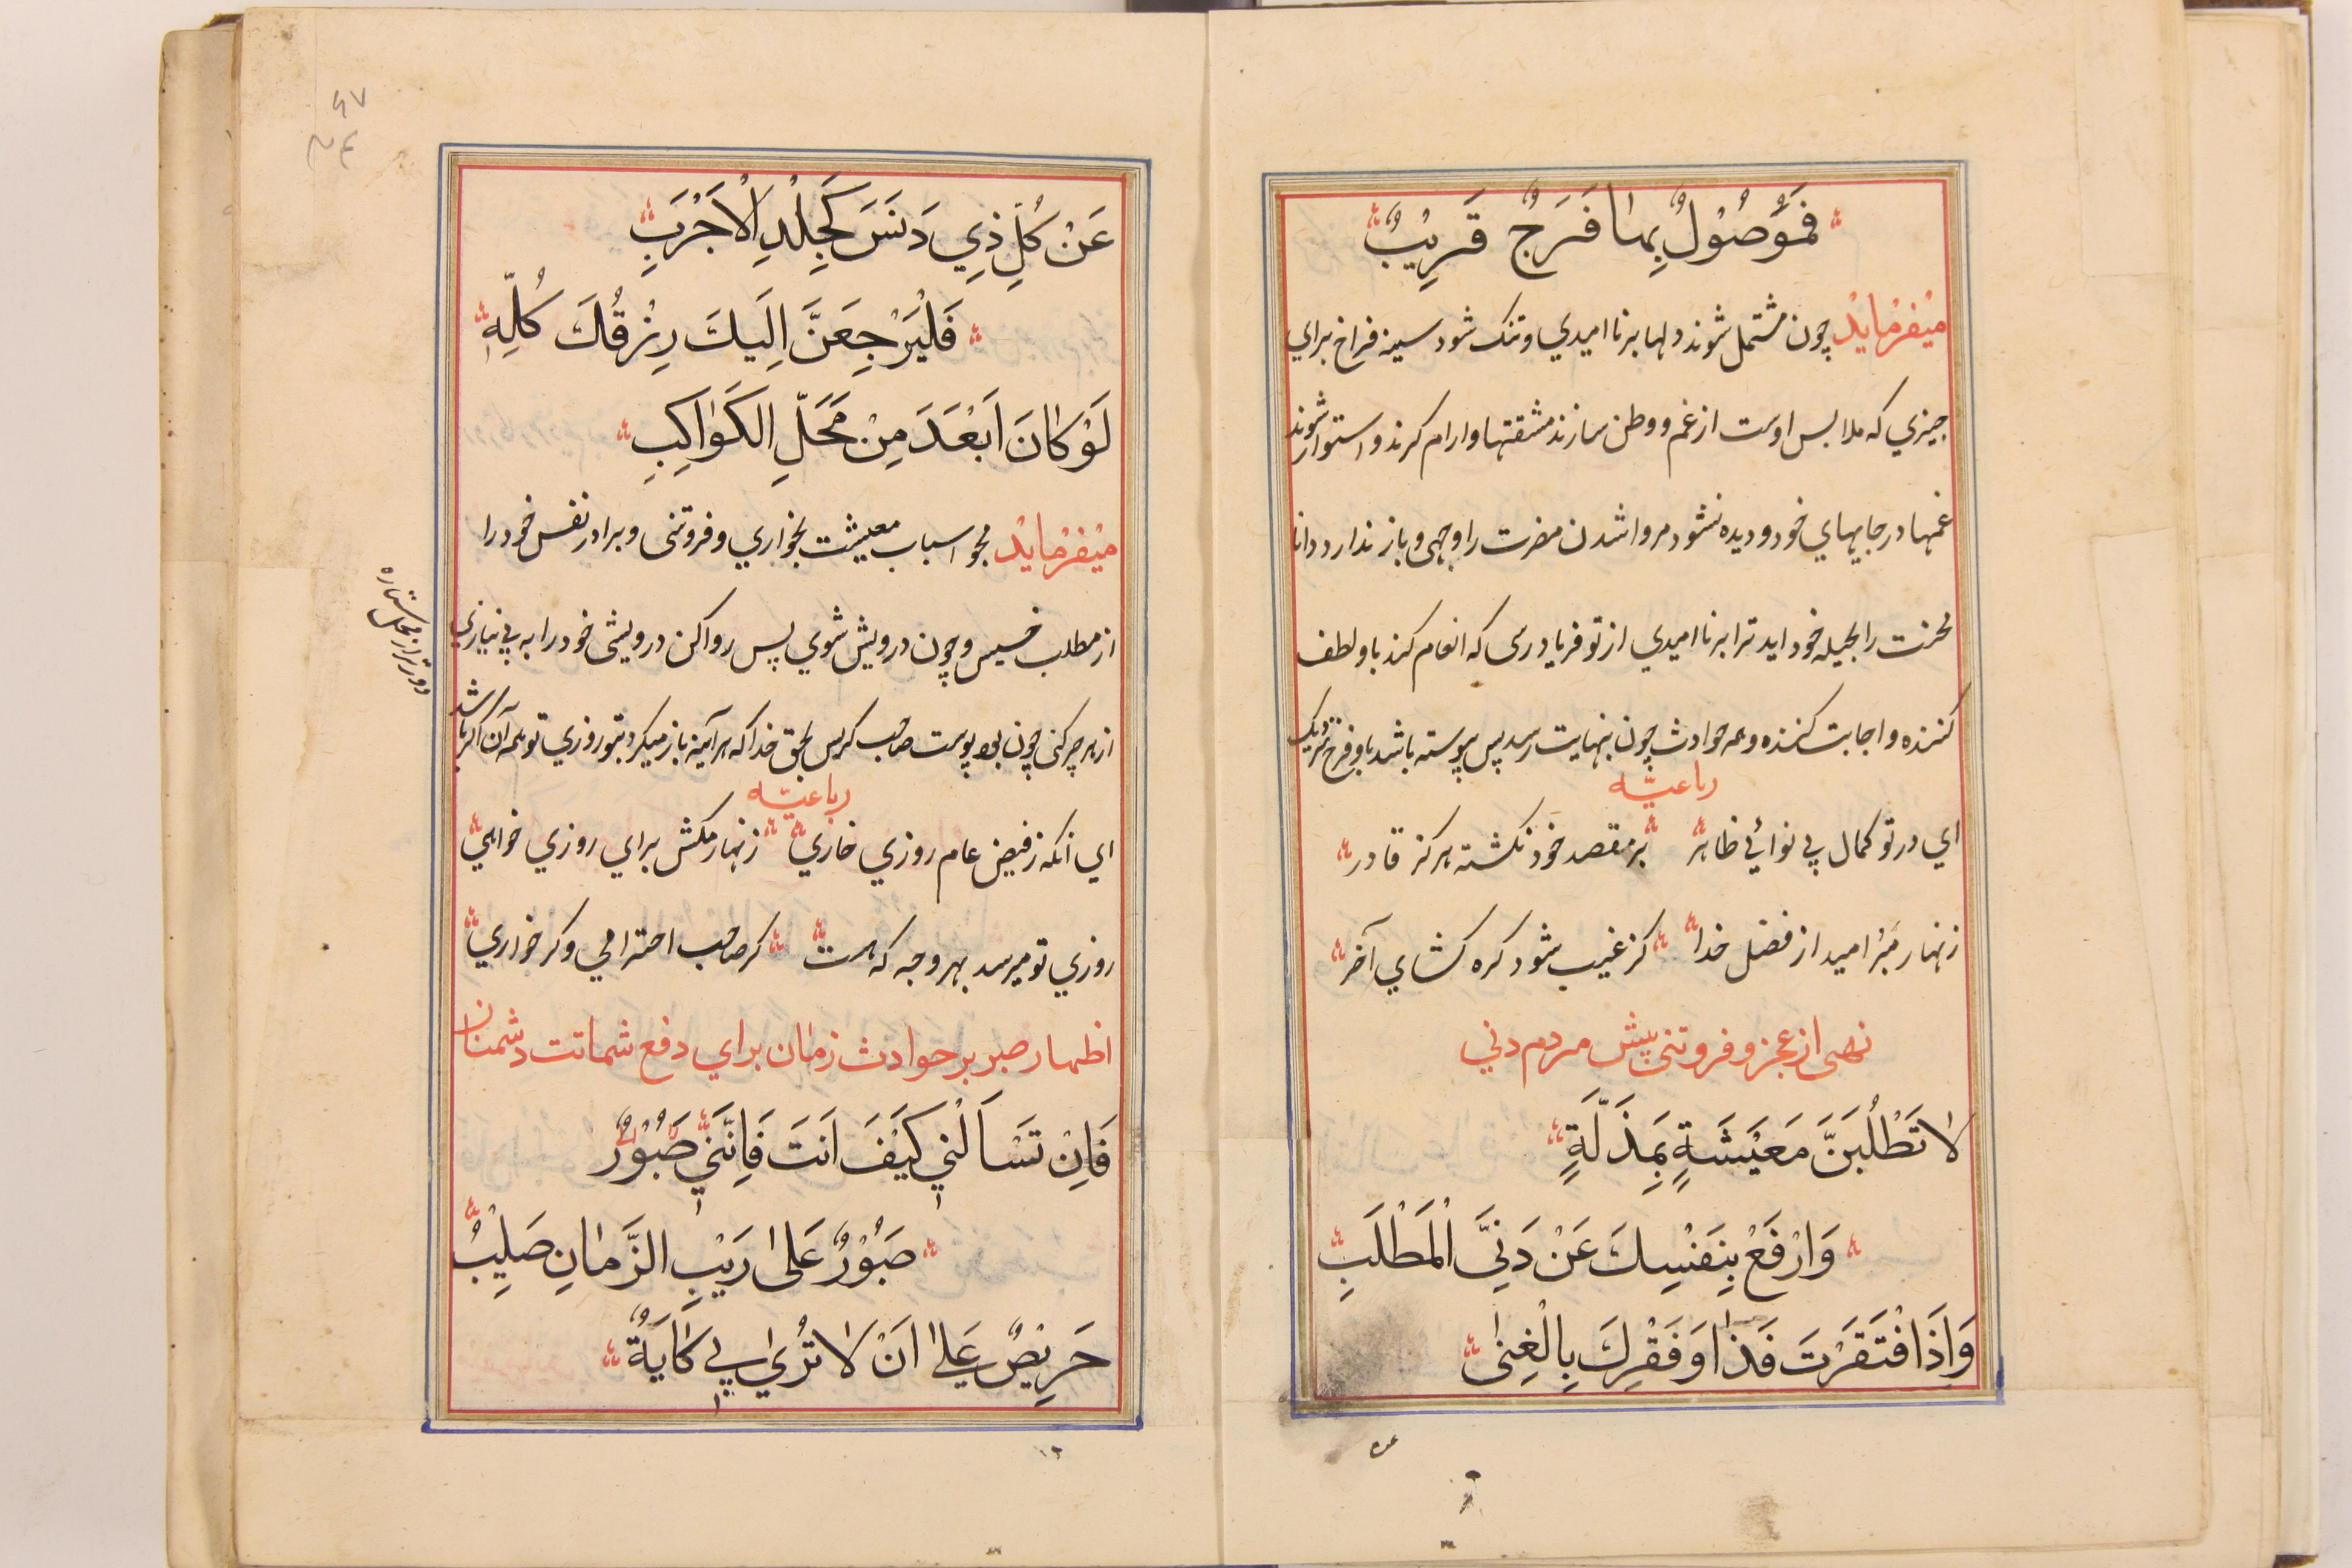 فَمَوْصُوْلٌ بِهٰا فَرَجٌ قَرِيْبٌ
میفرماید چون مشتمل شوند دلها بر ناامیدي و تنک شود سینه فراخ براي
چیزي که ملابس اوست از غم و وطن سازند مشقتها و ارام کرند و استوار شوند
غمها در جایهاي خود و دیده نشود مر واشدن مضرت را وجهی و باز ندارد دانا
محزنت را بحیله خود اید ترا بر ناامیدي از تو فریادرسی که انعام کند باو لطف
کننده و اجابت کننده و همه حوادث چون بنهایت رسد پس پیوسته باشد باو فرج نزدیک
رباعیّه
اي در تو کمال بی نوائی ظاهر بر مقصد خود نکشته هرکز قادر
زنهار مَبُر امید از فضل خدا کز غیب شود کره کشاي آخر
نهی از عجز و فروتنی پیش مردم دنی
لا تَطْلُبَنَّ مَعِيْشَةٍ بِمَذَلَّةٍ
وَارْفَعْ بِنَفْسِكَ عَنْ دَنِيَّ الْمَطْلَبِ
وَاِذَا فْتَقَرْتَ فَذٰا وَفَقْرِكَ بِالْغِنٰى
عَنْ كُلِّ ذِي دَنَسَ كَجِلْدِ الْاَجْرَبِ
فَلْيَرْجِعَنَّ اِلَيكَ رِزْقُكَ كُلِّهِ
لَوْ كٰانَ اَبْعَدَ مِنْ مَحَلِّ الكَوٰاكِبِ
میفرماید مجو اسباب معیشت بخواري و فروتنی و برادر نفس خود را
از مطلب خسیس و چون درویش شوي پس رواکن درویشی خود را به بی نیازي
از هر چرکنی چون بود پوست صاحب کرپس بحق خدا که هر آینه باز میکردد بتو روزي تو همه آن اکر باشد
دورتر از محل ستاره
رباعیّه
اي انکه ز فیض عام روزي خاري زنهار مکش براي روزي خواریي
روزي تو میرسد بهر وجه که هست کر صاحب احترامی و کر خواري
اظهار صبر بر حوادث زمان براي دفع شماتت دشمنان
فَاِنْ تَسْاَلْنِي كَيْفَ اَنتَ فَاِنَّنِي صَبُوْرٌ
صَبُوْرٌ عَلىٰ رَيْبِ الزَّمٰانِ صَلِيْبُ
حَرِيْصٌ عَلىٰ اَنْ لاٰ تُرىٰ بِي كٰايَةٌ